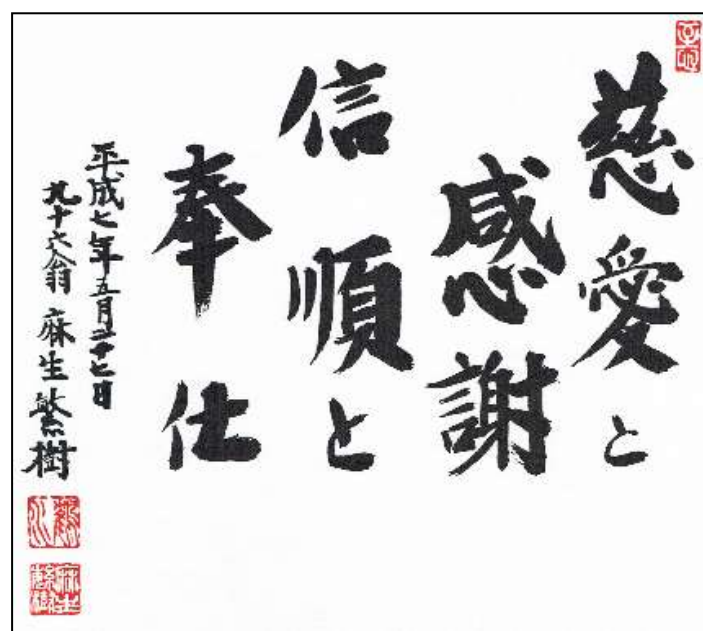 慈愛と
感謝
信順と
奉仕
平成七年五月二十七日
九十六翁 麻生繁樹